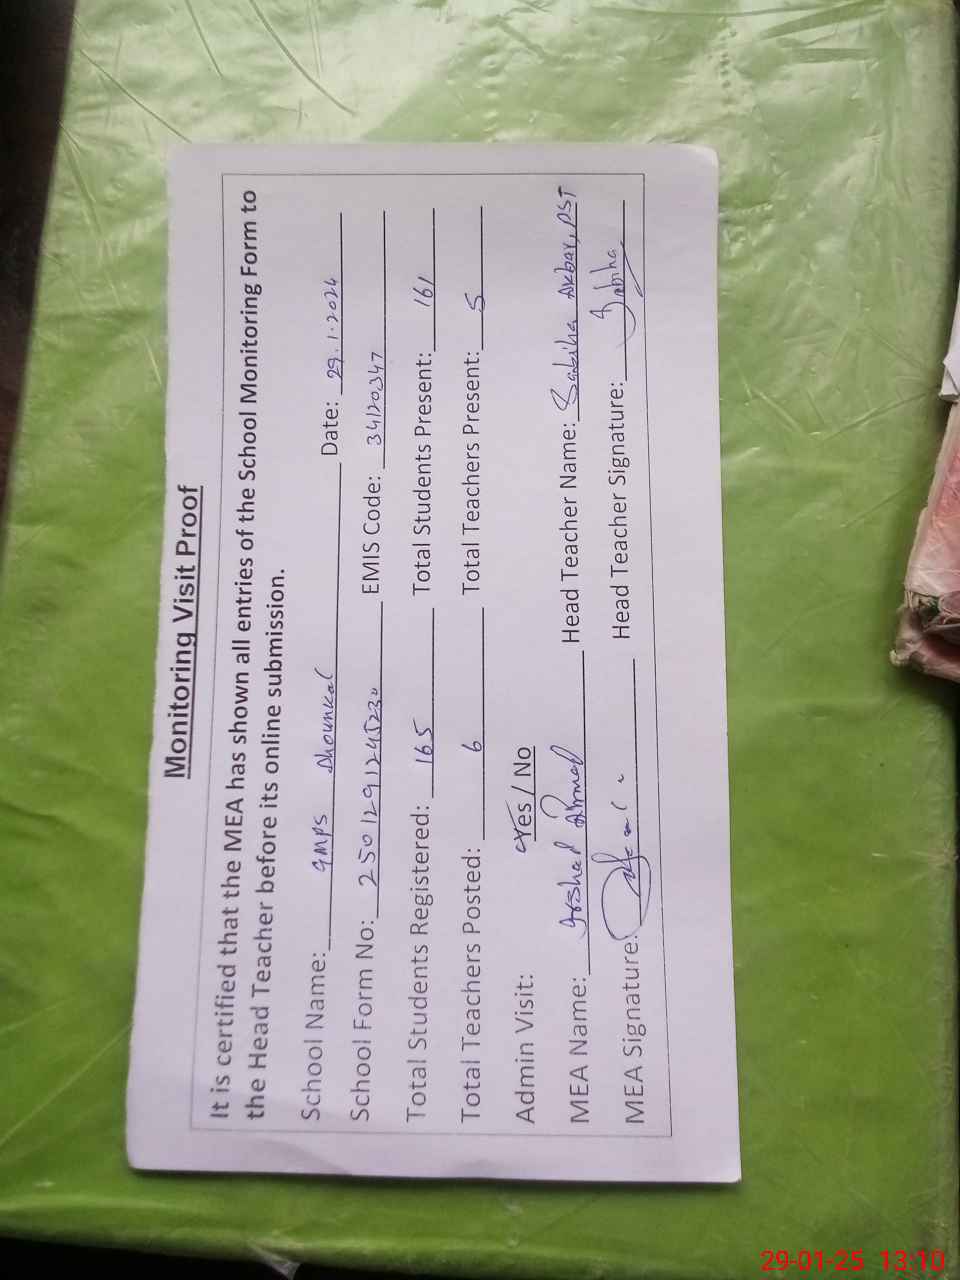 Monitoring Visit Proof
It is certified that the MEA has shown all entries of the School Monitoring Form to
the Head Teacher before its online submission.
School Name: GMPS Dhounkal Date: 29.1.2024
School Form No: 2501291245230 EMIS Code: 34120347
Total Students Registered: 165 Total Students Present: 161
Total Teachers Posted: 6 Total Teachers Present: 5
Admin Visit: Yes / No
MEA Name: Arshad Ahmad Head Teacher Name: Sabiha Akbar, PST
MEA Signature: Head Teacher Signature: Sabiha
29-01-25 13:10